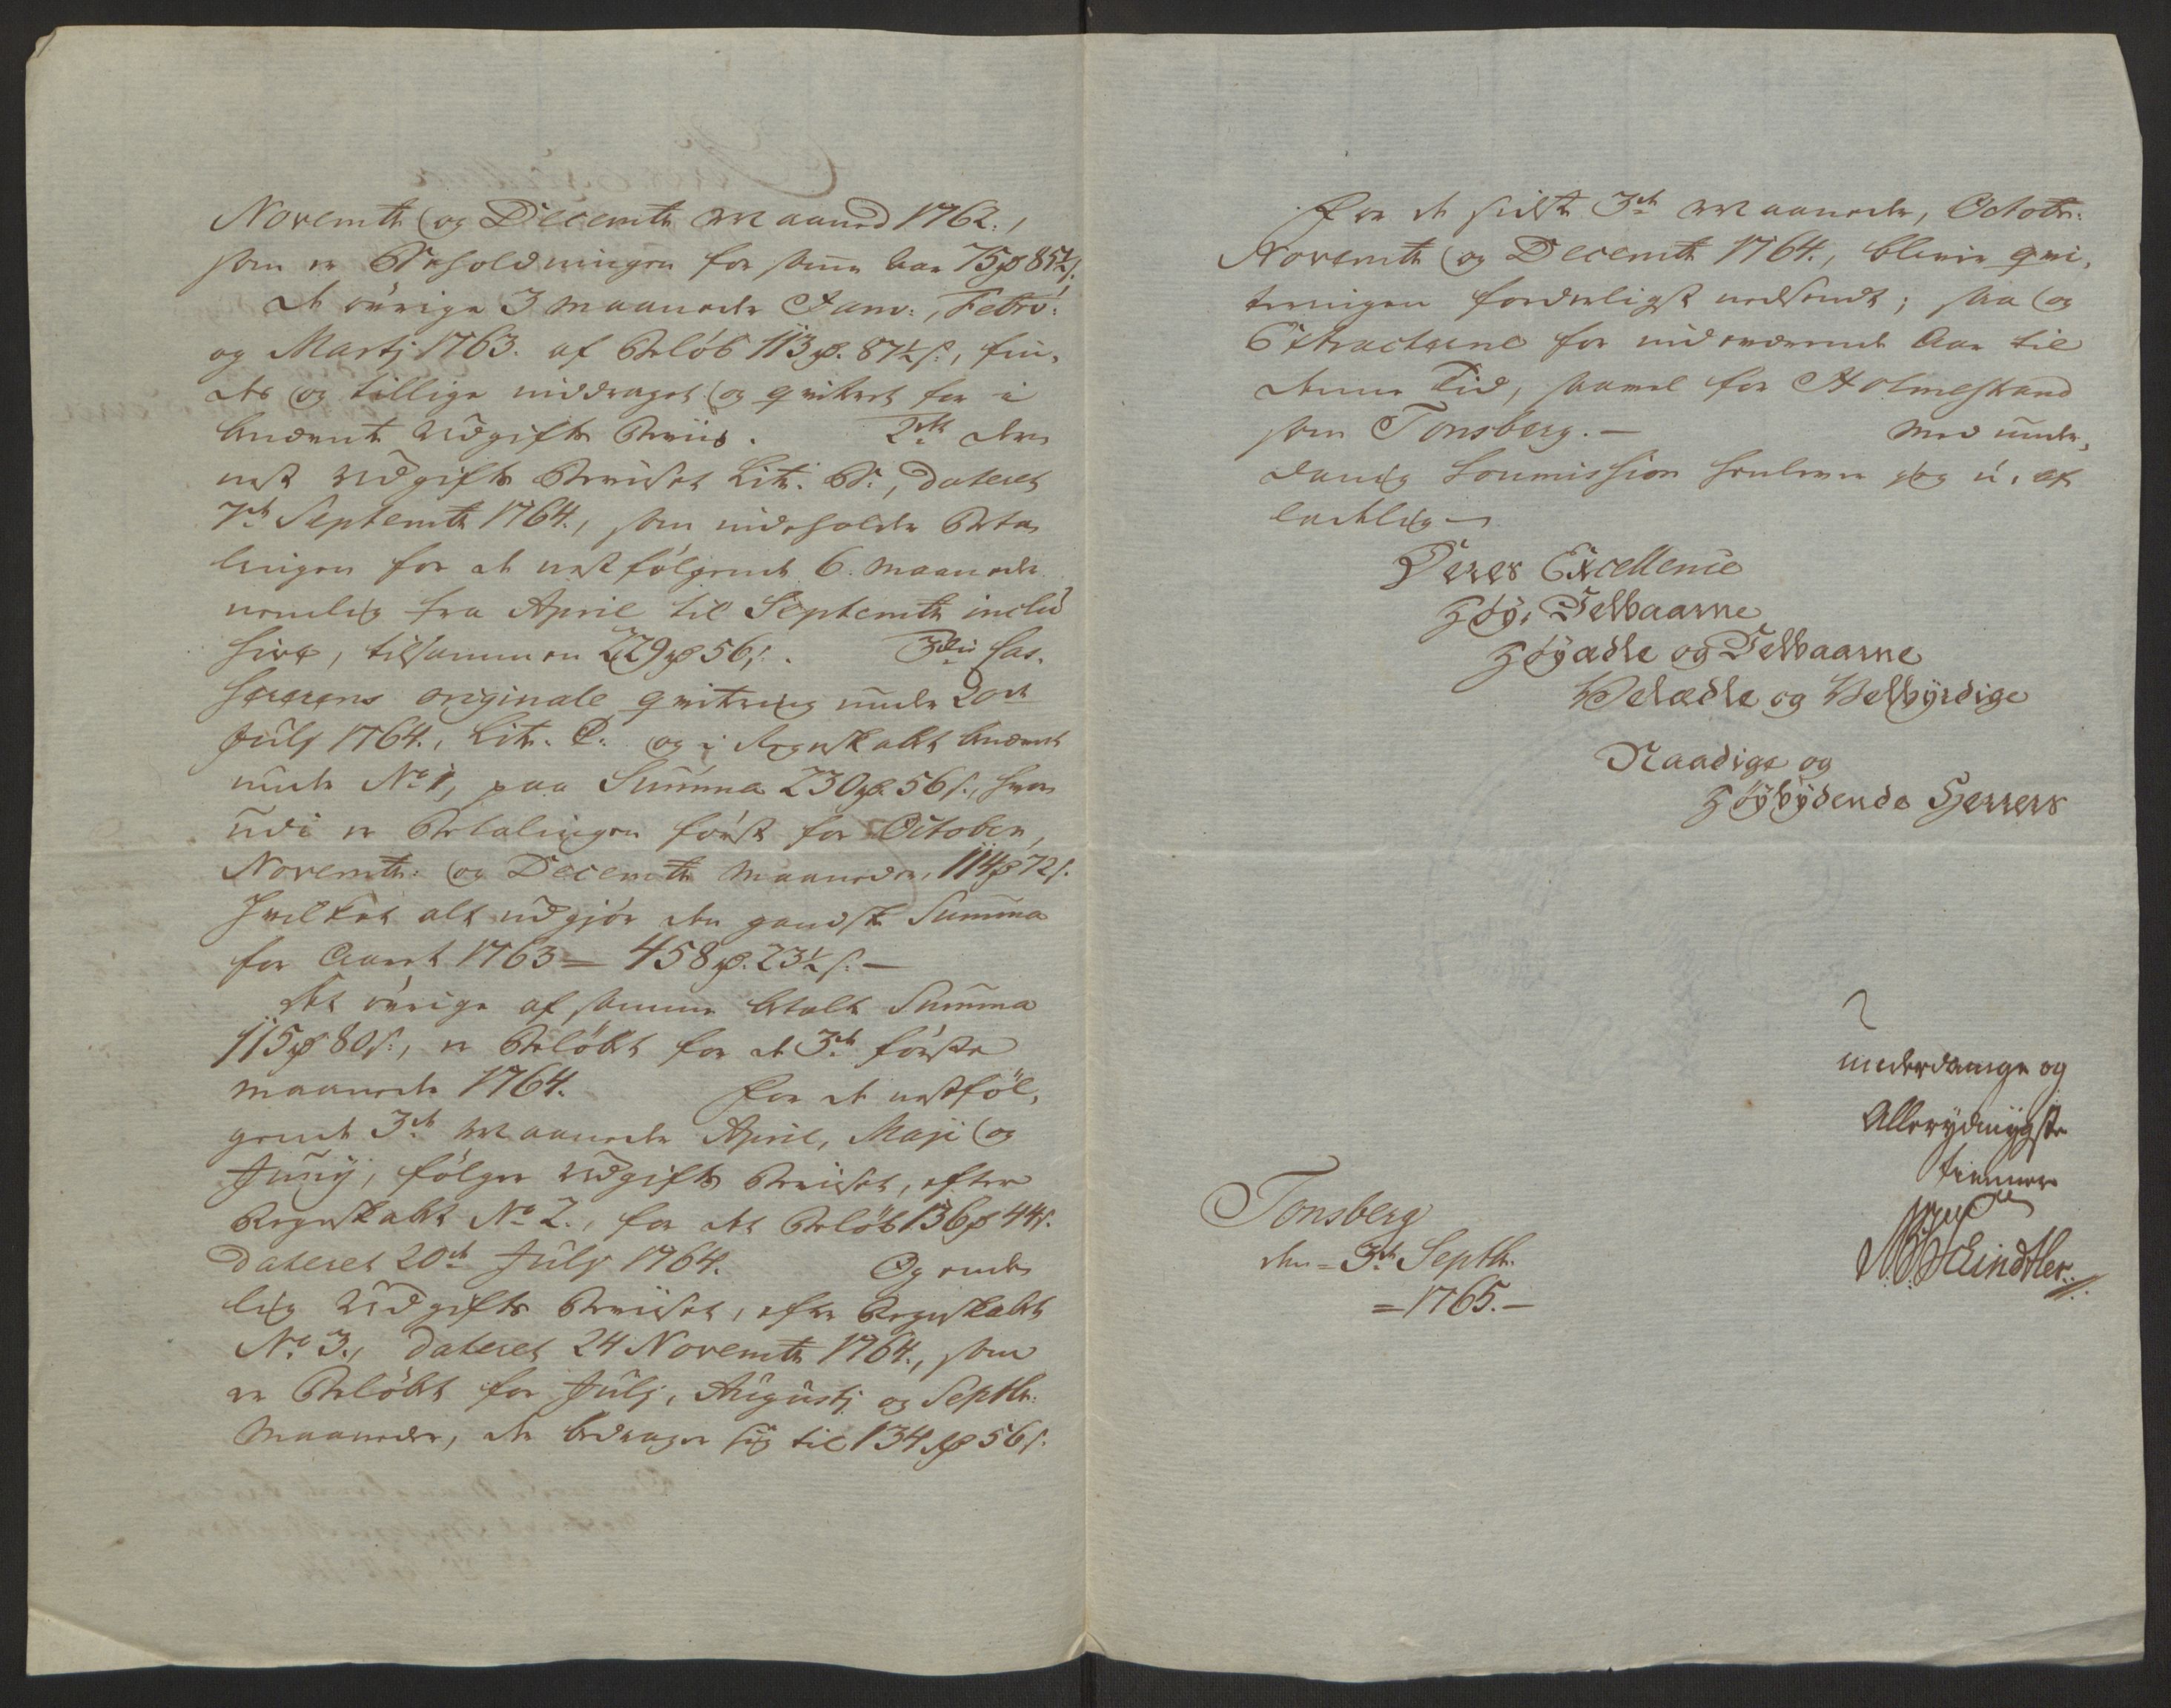 Novembr og Decembr Maaned 1762.,
som er Beholdningen for samme Aar 75 rd 85½ s.
de øvrige 3 Maaneder Janv:, Febrv:
og Martj 1763. af Beløb 113 rd. 87½ s:, fin-
des og tillige inddraget og qvitert for i
Udgifts Beviis. 2det den
nest Udgifts Beviset Litr. B:, dateret
7de Septembr 1764., som indeholder Beta-
lingen for de nestfølgende 6. Maaneder
nemlig fra April til Septembr inclu-
sive, tilsammen 229 rd 56 s. 3die Cas-
sererens originale qvitering under 20de
Julj 1764., Litr. C: og i Regnskabet
under No 1, paa Summa 230 rd. 56 s., hvor-
udi er Betalingen først for October,
Novembr: og Decembr Maaneder, 114 rd 72 s.
Hvilket alt udgjør den gandske Summa
for Aaret 1763 = 458 rd. 23½ s. —
Det øvrige af samme betalte Summa
115 rd 80 s:, er Beløbet for de 3de første
Maaneder 1764. For de nestføl-
gende 3de Maaneder April, Maji og
Junij, følger Udgifts Beviset, efter
Regnskabet No 2., for det Beløb 136 rd 44 s.
dateret 20de Julj 1764. Og ende-
lig Udgifts Beviset, efter Regnskabet
No 3., dateret 24 Novembr 1764., som
er Beløbet for Julj, Augustj og Septbr.
Maaneder, der bedrager sig til 134 rd 56 s.
For de sidste 3de Maaneder, Octobr:
Novembr og Decembr 1764., bliver qvi-
teringen forderligst nedsendt; saa og
Extracterne for indeværende Aar til
denne Tid, saavel for Holmestrand
som Tonsberg. — Med under-
danig Soumission henlever jeg u-af-
ladelig —
Deres Excellence
Høy- Velbaarne
Høyædle og Velbaarne
Velædle og Velbyrdige
Naadige og
Høybydende Herrers
underdanige og
Allerydmygste
tienner
Tonsberg
den = 3de Septbr.
= 1765. —